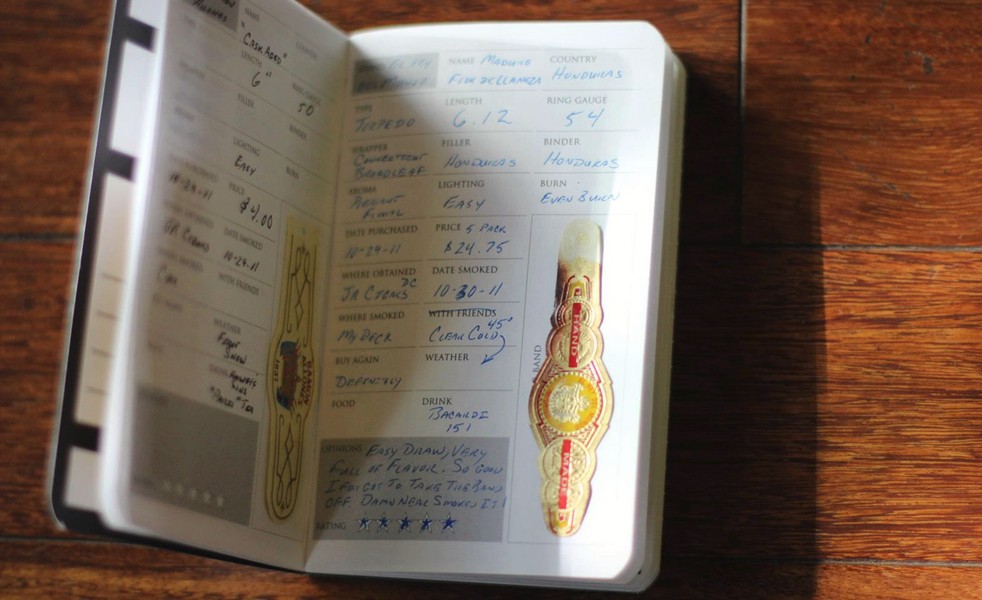 NAME
"CASK AGED"
COUNTRY
LENGTH
6"
RING GAUGE
50
FILLER
BINDER
LIGHTING
EASY
BURN
PRICE
$4.00
10-29-11
DATE SMOKED
JR CIGARS
10-29-11
WITH FRIENDS
WEATHER
FIRST
SNOW
TEA
RAMON
ALLONES
1837
NAME MADURO
COUNTRY
HONDURAS
TYPE
TORPEDO
LENGTH
6.12
RING GAUGE
54
WRAPPER
CONNECTICUT
BROADLEAF
FILLER
HONDURAS
BINDER
HONDURAS
AROMA
LIGHTING
EASY
BURN
EVEN BURN
DATE PURCHASED
10-29-11
PRICE 5 PACK
$24.75
WHERE OBTAINED
JR CIGARS DC
DATE SMOKED
10-30-11
WHERE SMOKED
MY DECK
WITH FRIENDS
CLEAR COLD 45°
BUY AGAIN
DEFENITLY
WEATHER
FOOD
DRINK
BACARDI
151
OPINIONS EASY DRAW, VERY
FULL OF FLAVOR. SO GOOD
I FORGOT TO TAKE THE BAND
OFF. DAMN NEAR SMOKED IT!
RATING
BAND
HAND
MADE